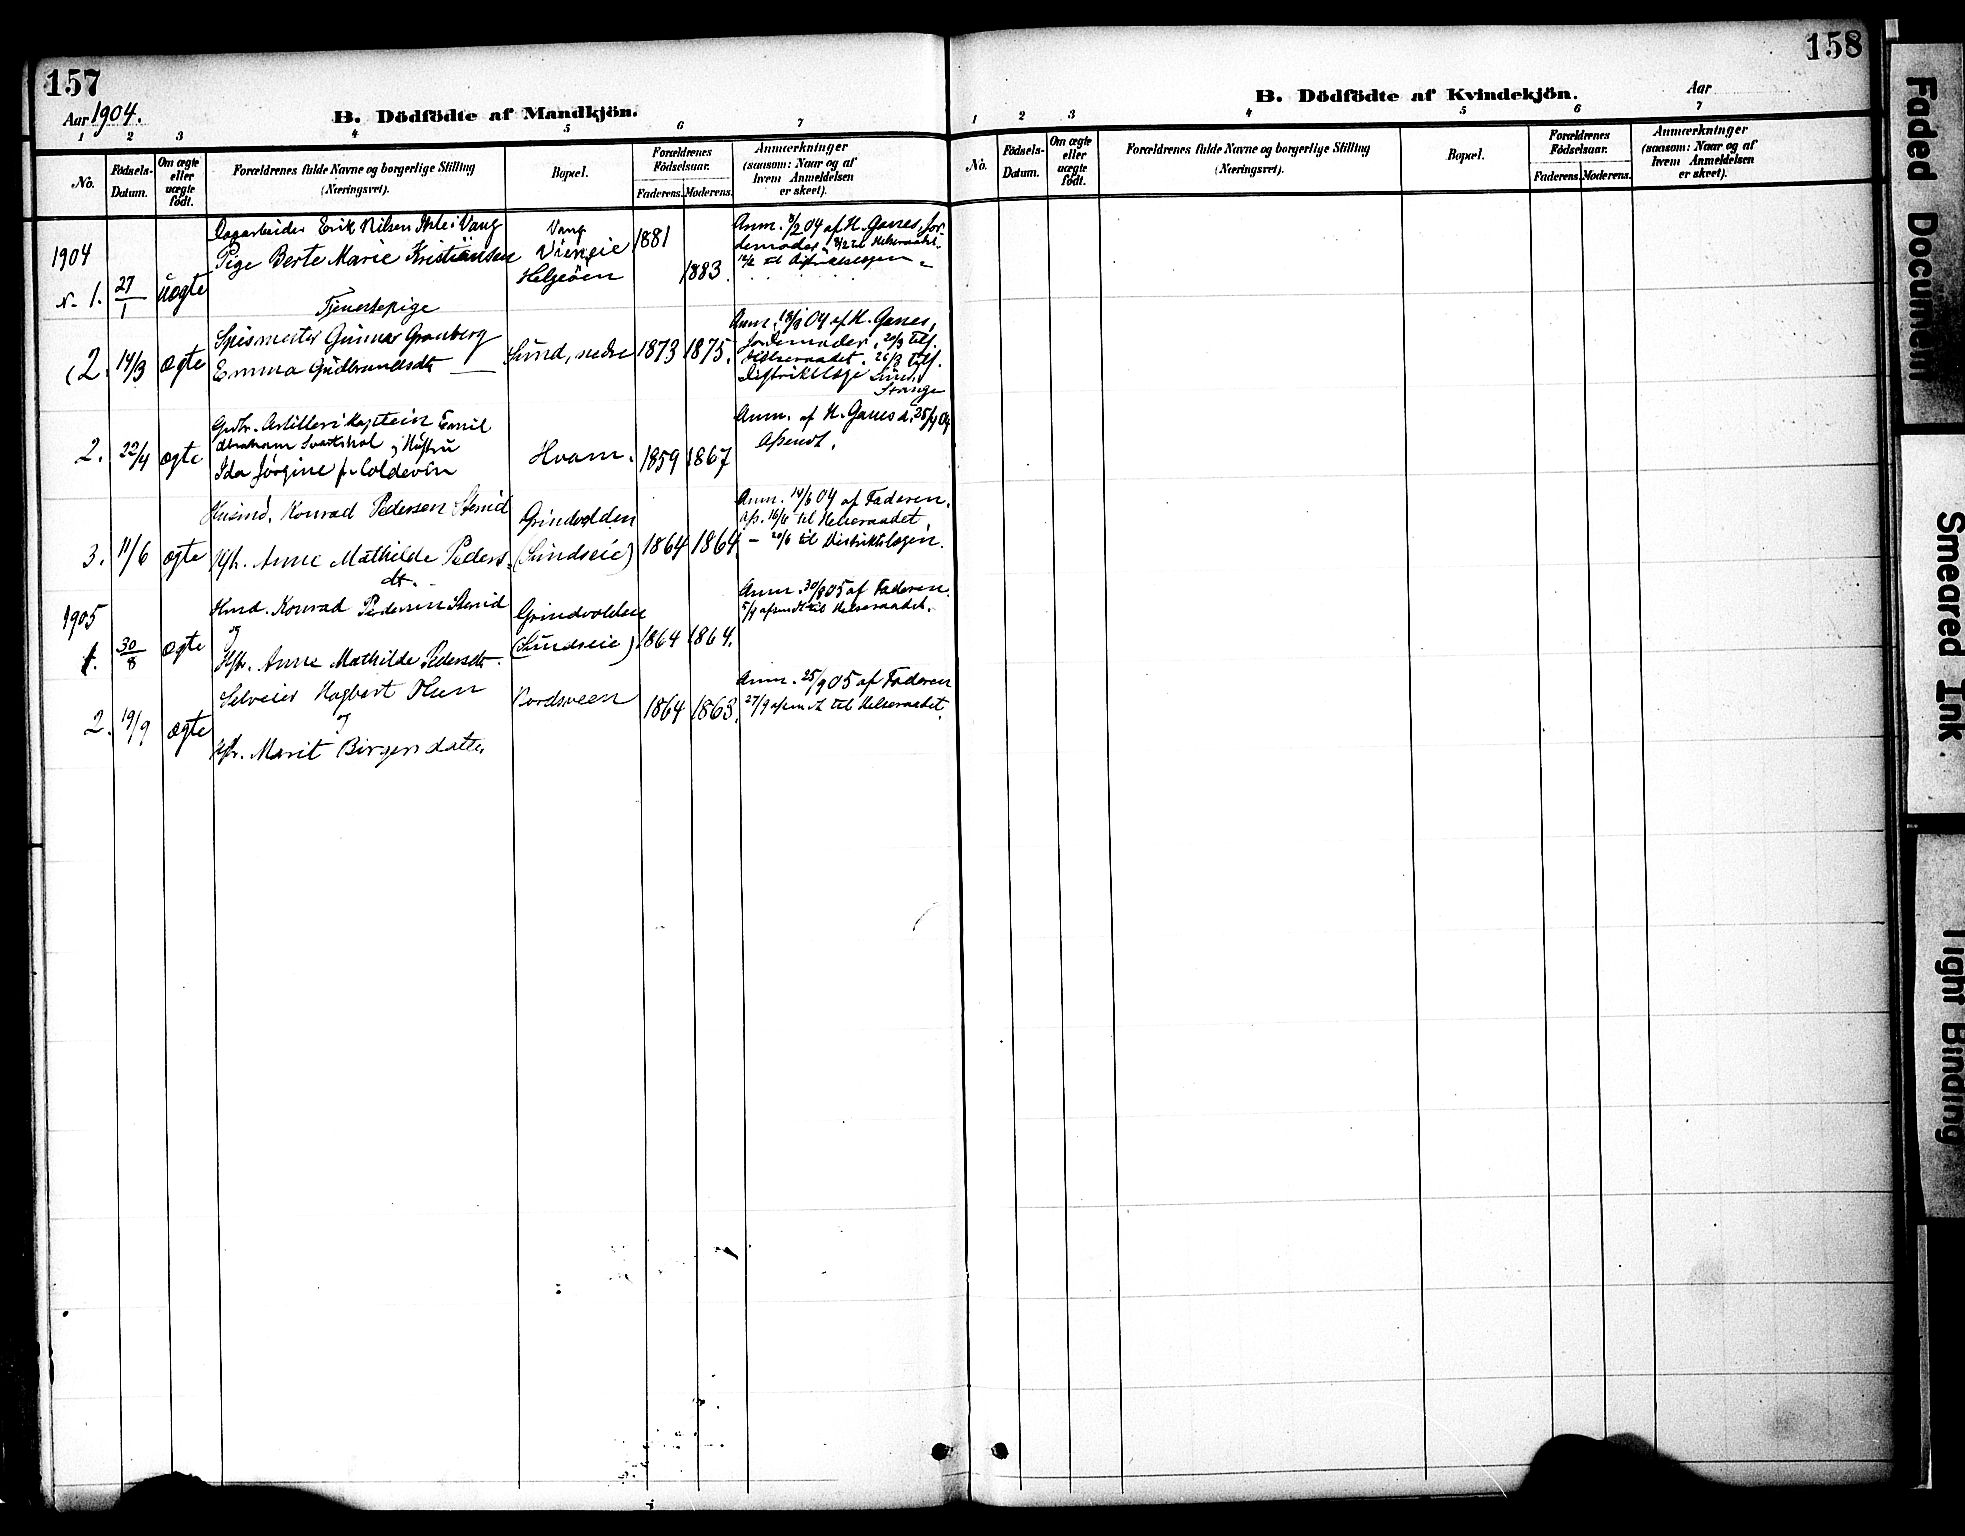 157
Aar 1904.
B. Dödfödte af Mandkjön.
1 2 3 4 5 6 7
No.
Födsels-Datum.
Om ægte eller uægte födt.
Forældrenes fulde Navne og borgerlige Stilling
(Næringsvei).
Bopæl.
Forældrenes Födselsaar.
Faderens. Moderens.
Anmærkninger
(saasom: Naar og af
hvem Anmeldelsen
er skeet).
1904
N. 1. 27/1 uægte
Dagarbeider Erik Nilsen i Vang
Pige Berte Marie Kristiansen
Tjenestepige
Vang
Helgøen
1881 1883.
Anm. 8/2 04 af H. Ganes, jor-
demoder,
2. 14/3 ægte
Spismester Gunnar Granberg
Emma Gudbrandsdt
Sund, nedre 1873 1875.
Anm. 18/3 04 af H. Ganes,
Jordemoder, 20/3 tilf.
Helseraadet. 26/3 tilf.
Distriktslæge
Stange
2. 22/4 ægte
Artillerikaptein Emil
Abraham Svartshol, Hustru
Ida Jørgine f. Coldevin
Hvam. 1859 1867
Anm. af H. Ganes d. 25/4 04
Afsendt.
3. 11/6 ægte
Husmd. Konrad Pedersen
Hst. Anne Mathilde Peders-
dt.
Grindvolden
(Sundseie) 1864 1864
Anm. 14/6 04 af Faderen.
afs. 16/6 til Helseraadet,
— 20/6 til Distriktslægen.
1905
1. 30/8 ægte
Hmd. Konrad Pedersen
og
Hstr. Anne Mathilde Pedersdt.
Grindvolden
(Sundseie) 1864 1864.
Anm. 30/8 05 af Faderen.
5/9 afsendt til Helseraadet.
2. 19/9 ægte
Selveier Hagbart Olsen
og
Hstr. Marit Birgersdatter
Nordsveen 1864 1863.
Anm. 25/9 05 af Faderen
27/9 afsendt til Helseraadet.
158
Aar
B. Dödfödte af Kvindekjön.
1 2 3 4 5 6 7
No.
Födsels-Datum.
Om ægte eller uægte födt.
Forældrenes fulde Navne og borgerlige Stilling
(Næringsvei).
Bopæl.
Forældrenes Födselsaar.
Faderens. Moderens.
Anmærkninger
(saasom: Naar og af
hvem Anmeldelsen
er skeet).
Faded Document
Smeared Ink.
Tight Binding